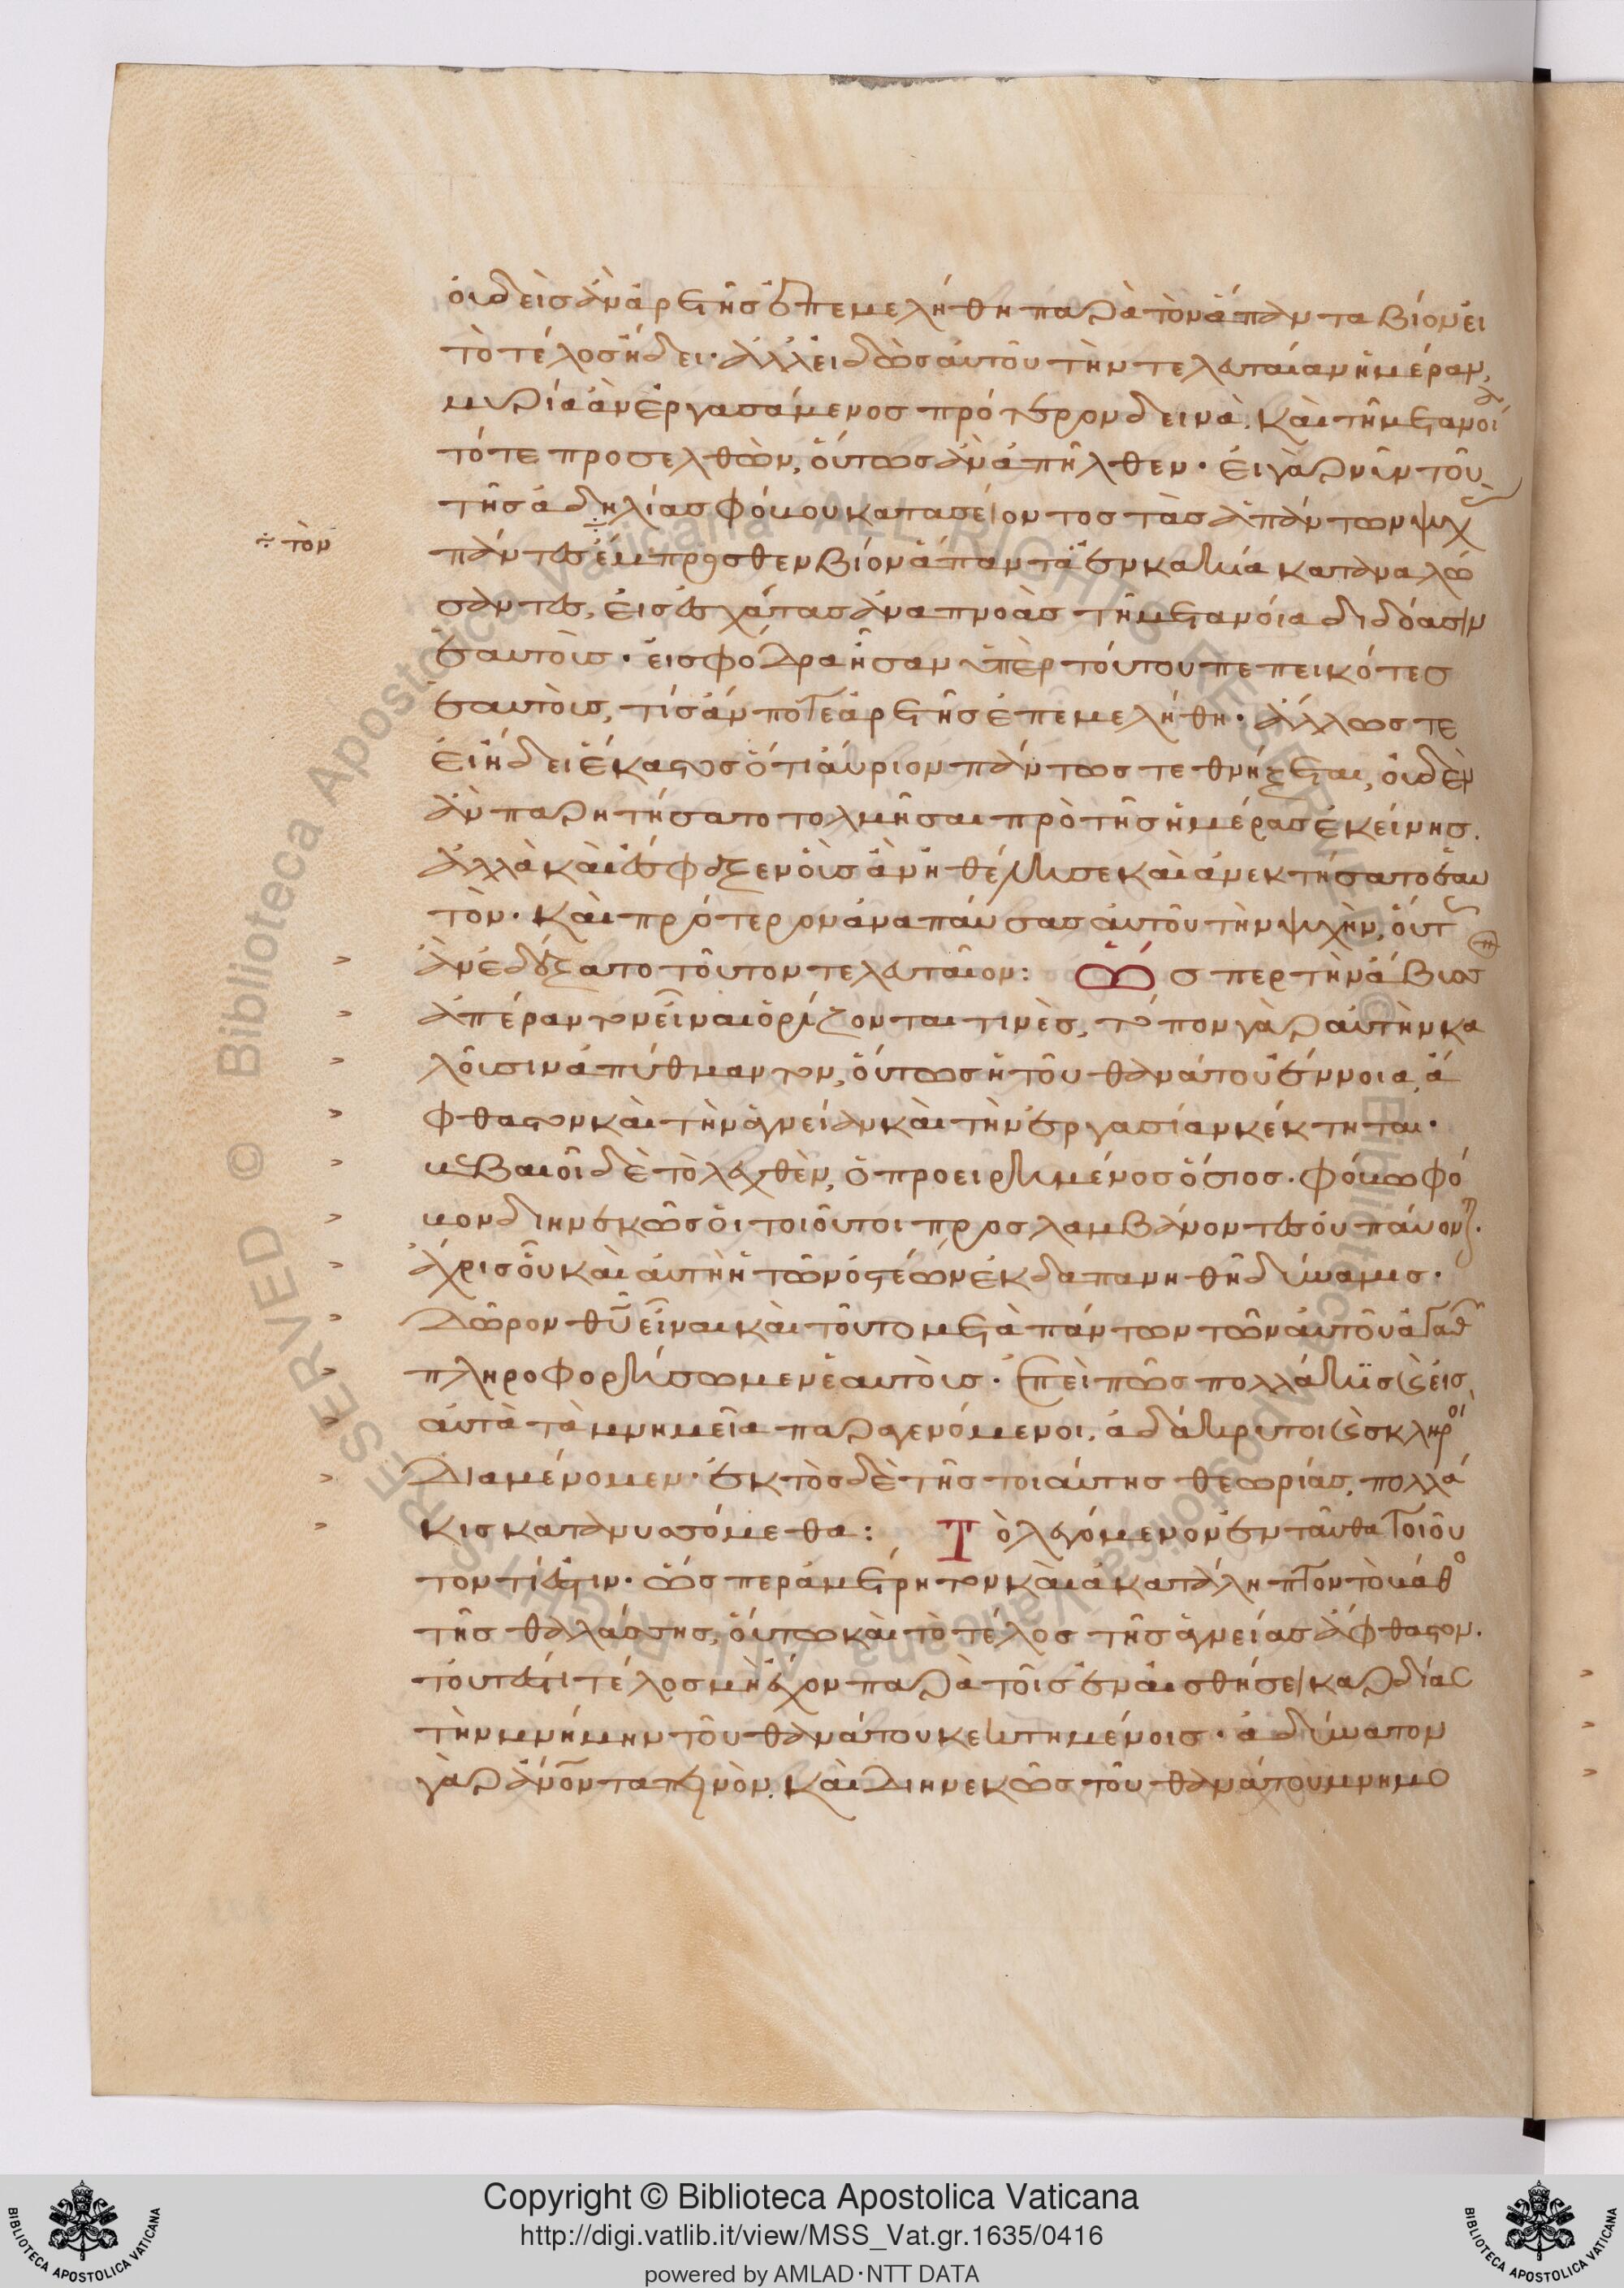 οὐδεὶς ἂν ἀρετῆς ἐπεμελήθη παρὰ τὸν ἅπαντα βίον εἰ
τὸ τέλος ᾔδει· ἀλλ' εἰδὼς αὐτοῦ τὴν τελευταίαν ἡμέραν,
μυρία ἂν ἐργασάμενος πρότερον δεινὰ, καὶ τῆ μετανοία
τότε προσελθὼν, οὕτως ἂν ἀπῆλθεν· εἰ γὰρ νῦν τοῦ
τῆς ἀδηλίας φόβου κατασείοντος τὰς ἁπάντων ψυχὰς
÷ τὸν
πάντες ÷ ἔμπροσθεν βίον ἅπαντα ἐν κακία καταναλώ
σαντες, εἰς ἐσχάτας ἀναπνοὰς τῆ μετανοία διδόασιν
ἑαυτοὺς· εἰ σφόδρα ἦσαν ὑπὲρ τούτου πεπεικότες
ἑαυτοὺς, τίς ἄν ποτε ἀρετῆς ἐπεμελήθη· ἄλλως τε
εἰ ἤδει ἕκαστος ὅτι αὔριον πάντως τεθνήξεται, οὐδὲν
ἂν παρητήσατο τολμῆσαι πρὸ τῆς ἡμέρας ἐκείνης.
ἀλλὰ καὶ ἔσφαξεν οὓς ἂν ἠθέλησε καὶ ἀνεκτήσατο ἑαυ
τὸν· καὶ πρότερον ἀναπαύσας αὐτοῦ τὴν ψυχὴν, οὕτως
ἂν ἐδέξατο τοῦτον τελευταῖον: Ὥσπερ τὴν ἄβυσσον
ἀπέραντον εἶναι ὁρίζονται τινὲς, τόπον γὰρ αὐτὴν κα
λοῦσιν ἀπύθμαντον, οὕτως ἡ τοῦ θανάτου ἔννοια, ἄ
φθαστον καὶ τὴν ἁγνείαν καὶ τὴν ἐργασίαν κέκτηται·
βεβαιοῖ δὲ τὸ λεχθὲν, ὁ προειρημένος ὅσιος. φόβω φό
βον διηνεκῶς οἱ τοιοῦτοι προσλαμβάνοντες οὐ παύονται.
ἄχρις οὗ καὶ αὐτὴ ἡ τῶν ὀστέων ἐκδαπανηθῆ δύναμις.
Δῶρον θυ εἶναι καὶ τοῦτο μετὰ πάντων τῶν αὐτοῦ ἀγαθῶν
πληροφορήσωμεν ἑαυτοὺς. ἐπεὶ πῶς πολλάκις καὶ εἰς
αὐτὰ τὰ μνημεῖα παραγενόμενοι, ἀδάκρυτοι καὶ σκληροὶ
Διαμένομεν· ἐκτὸς δὲ τῆς τοιαύτης θεωρίας, πολλά
κις κατανυσσόμεθα: Τὸ λεγόμενον ἐνταῦθα τοιοῦ
τον τί ἐστιν. ὥσπερ ἀμέτρητον καὶ ἀκατάληπτον τὸ βάθος
τῆς θαλάσσης, οὕτω καὶ τὸ τέλος τῆς ἁγνείας ἄφθαστον.
τουτέστι τέλος μὴ ἔχον παρὰ τοῖς ἐν αἰσθήσει καρδίας
τὴν μνήμην τοῦ θανάτου κεκτημένοις· ἀδύνατον
γὰρ ἄνον ταπεινὸν, καὶ Διηνεκῶς τοῦ θανάτου μνημο
Copyright © Biblioteca Apostolica Vaticana
http://digi.vatlib.it/view/MSS_Vat.gr.1635/0416
powered by AMLAD·NTT DATA
BIBLIOTECA APOSTOLICA VATICANA
BIBLIOTECA APOSTOLICA VATICANA